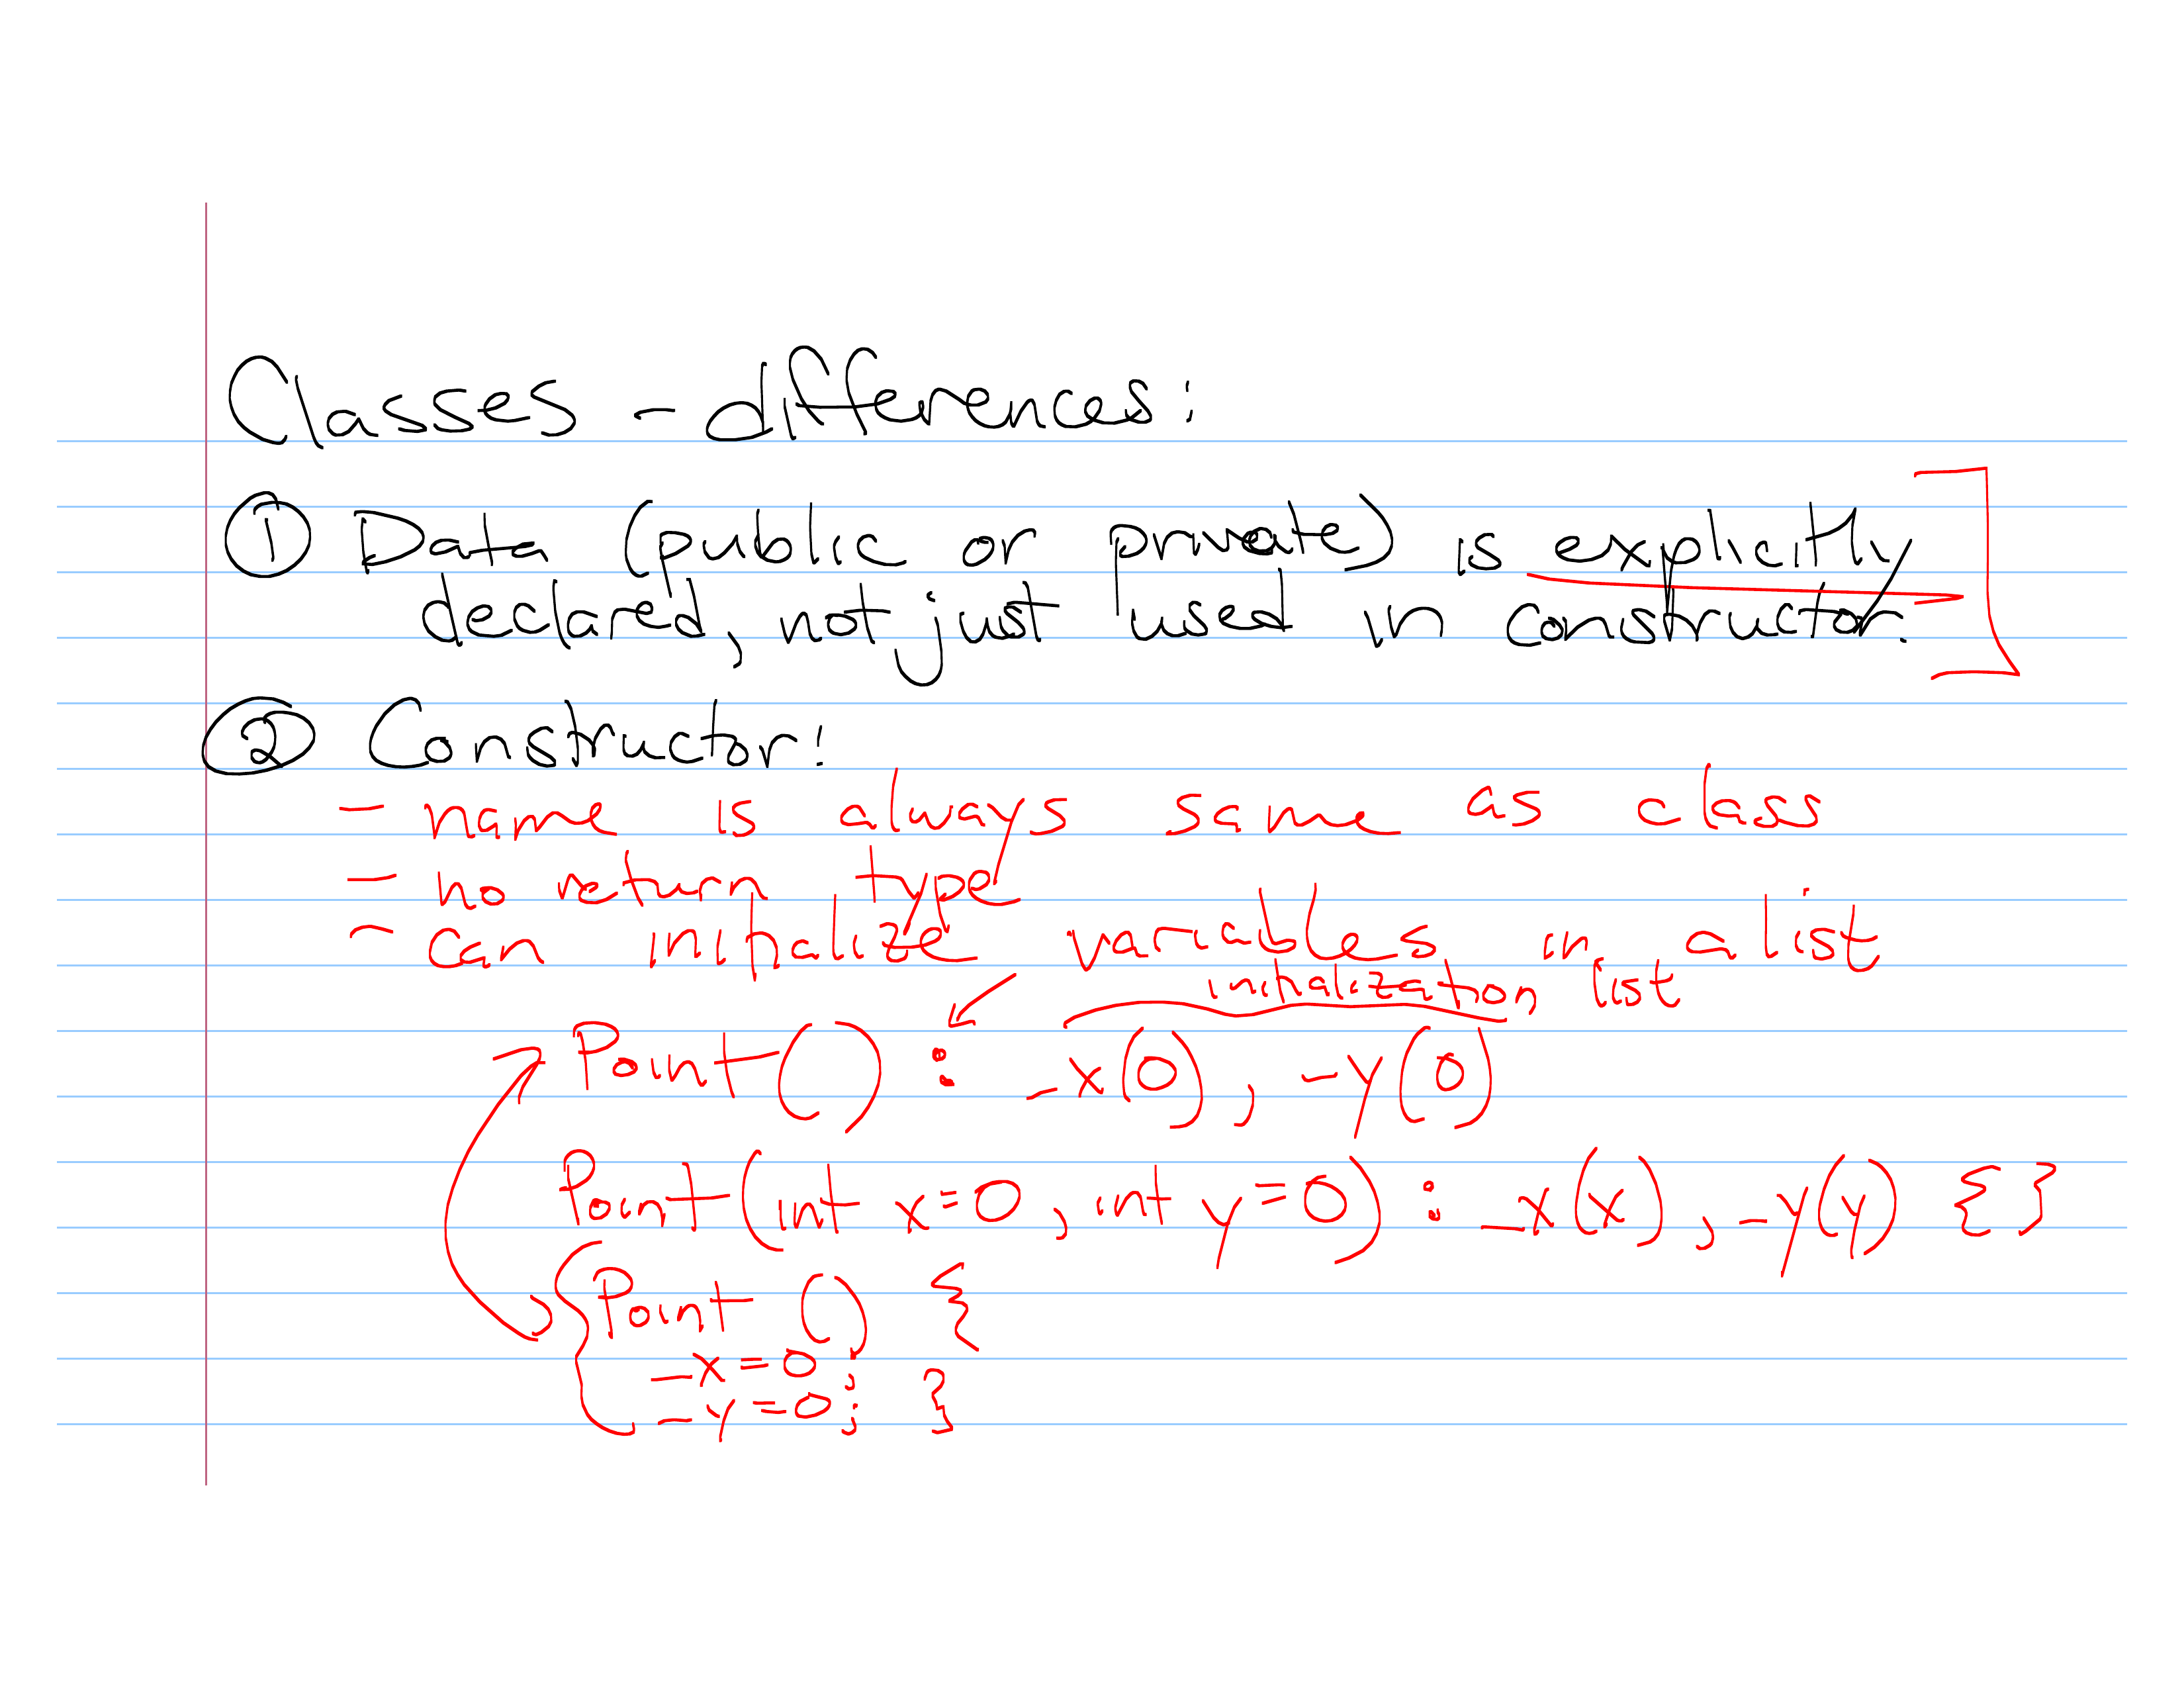 Classes - differences:
① Data (public or private) is explicitly
declared, not just used in constructor.
② Constructor:
- name is always same as class
- no return type
- can initialize variables in a list
initialization list
Point() : _x(0), _y(0)
Point(int x=0, int y=0) : _x(x), _y(y) {}
Point () {
_x=0;
_y=0; }